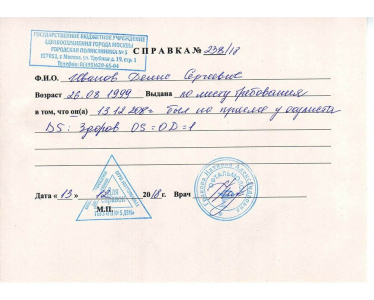 ГОСУДАРСТВЕННОЕ БЮДЖЕТНОЕ УЧРЕЖДЕНИЕ
ЗДРАВООХРАНЕНИЯ ГОРОДА МОСКВЫ
ГОРОДСКАЯ ПОЛИКЛИНИКА № 5
127053, г. Москва, ул. Трубная д. 19, стр. 1
СПРАВКА № 238/18
Ф.И.О. Иванов Денис Сергеевич
Возраст 26.08 1999 Выдана по месту требования
в том, что он(а) 13.12 был на приеме у окулиста
DS: Здоров OS = OD = 1
Дата « 13 » 12 2018 г. Врач
М.П.
Для справок